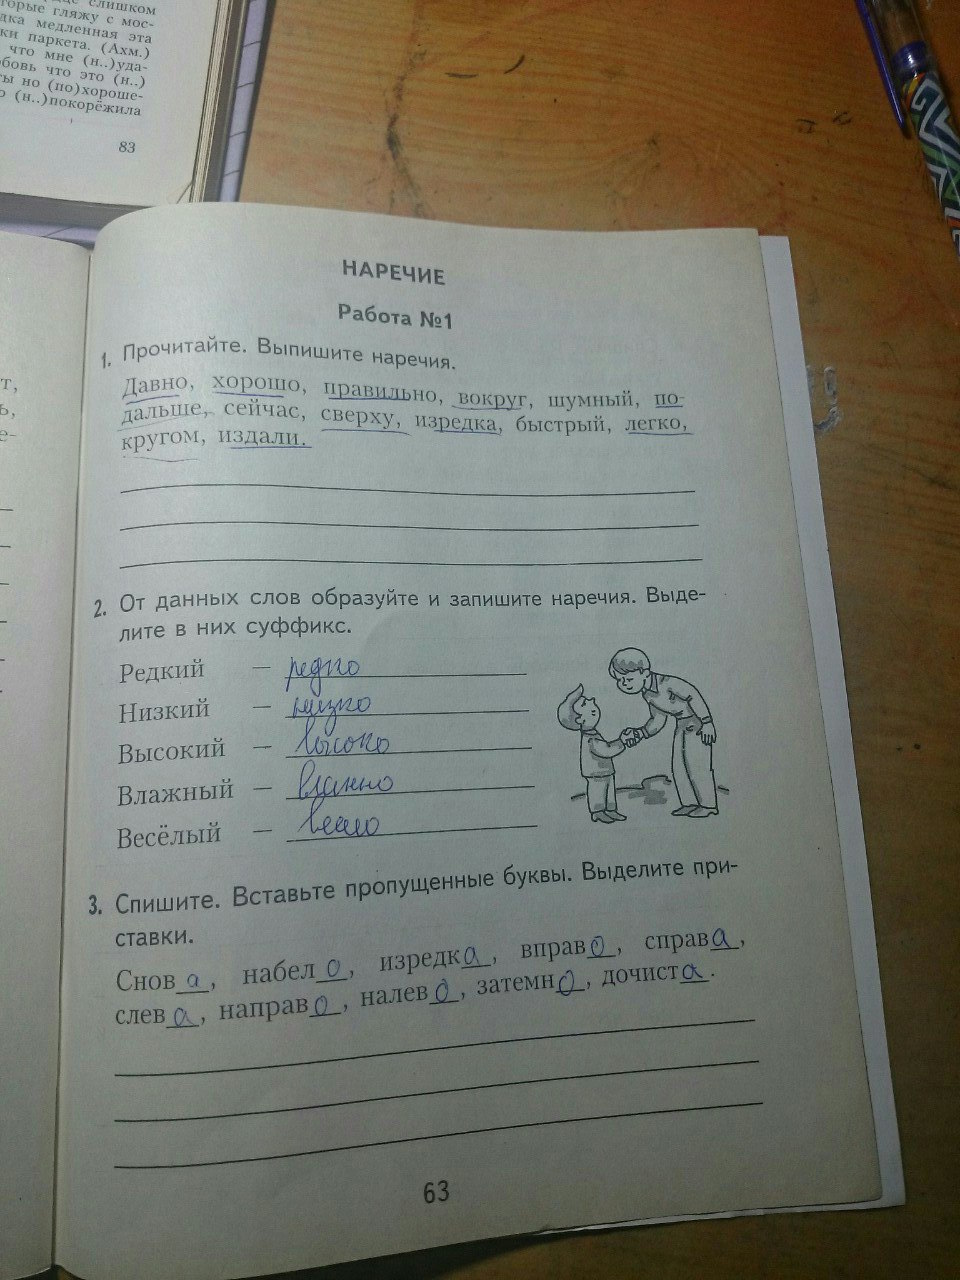 слишком
торые гляжу с мос-
дка медленная эта
ки паркета. (Ахм.)
что мне (н..)уда-
бовь что это (н..)
ты но (по)хороше-
о (н..)покорёжила
83
т,
ь,
е-
НАРЕЧИЕ
Работа №1
1. Прочитайте. Выпишите наречия.
Давно, хорошо, правильно, вокруг, шумный, по-
дальше, сейчас, сверху, изредка, быстрый, легко,
кругом, издали.
2. От данных слов образуйте и запишите наречия. Выде-
лите в них суффикс.
Редкий — редко
Низкий — низко
Высокий — высоко
Влажный — влажно
Весёлый —
3. Спишите. Вставьте пропущенные буквы. Выделите при-
ставки.
Снов а, набел о, изредк а, вправ о, справ а,
слев а, направ о, налев о, затемн о, дочист а.
63